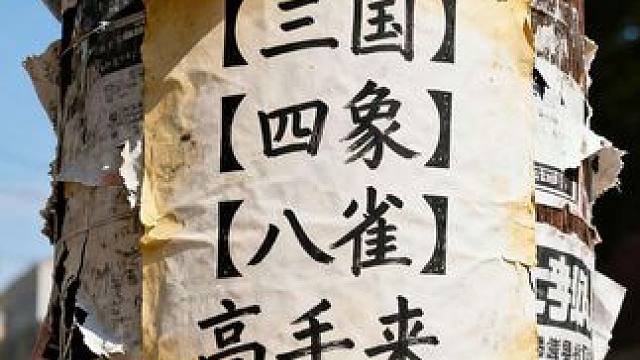 【三国】
【四象】
【八雀】
高手来